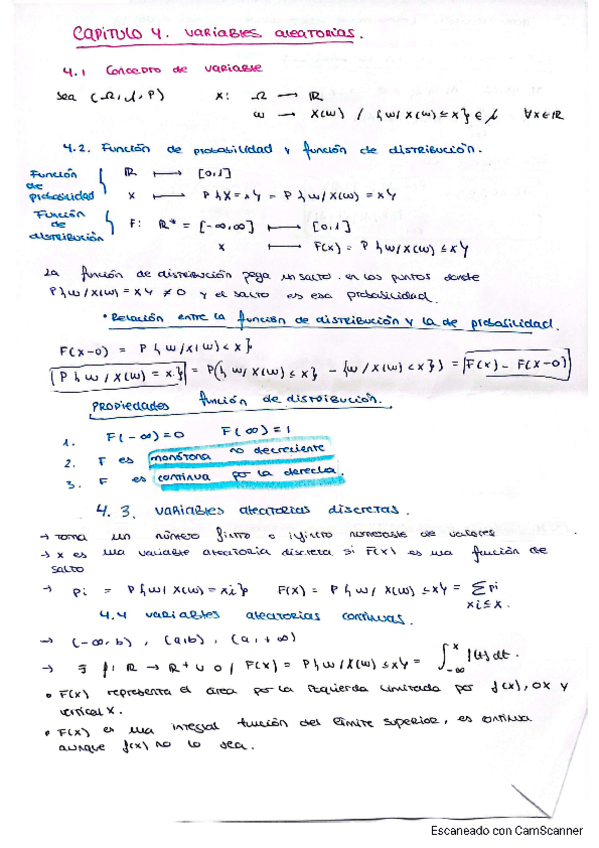 CAPITULO 4. VARIABLES ALEATORIAS.
4.1 Concepto de variable
Sea (Ω, 𝒜, P) X: Ω → ℝ
ω → X(ω) / {ω/X(ω) ≤ x} ∈ 𝒜 ∀x∈ℝ
4.2. Función de probabilidad y función de distribución.
Función de probabilidad { ℝ ⟼ [0,1]
x ⟼ P{X=x} = P{ω/X(ω)=x}
Función de distribución } F: ℝ* = [-∞,∞] ⟼ [0,1]
x ⟼ F(x) = P{ω/X(ω) ≤ x}
La función de distribución pega un salto en los puntos donde
P{ω/X(ω)=x} ≠ 0 y el salto es esa probabilidad.
• Relación entre la función de distribución y la de probabilidad.
F(x-0) = P{ω/X(ω) < x}
P{ω/X(ω) = x} = P({ω/X(ω) ≤ x} - {ω/X(ω) < x}) = F(x) - F(x-0)
PROPIEDADES función de distribución.
1. F(-∞)=0 F(∞)=1
2. F es monótona no decreciente
3. F es continua por la derecha.
4.3. Variables aleatorias discretas.
→ toma un número finito o infinito numerable de valores
→ X es una variable aleatoria discreta si F(x) es una función de
salto
→ pi = P{ω/X(ω)=xi} F(x) = P{ω/X(ω) ≤ x} = Σpi
xi≤x.
4.4 Variables aleatorias continuas.
→ (-∞,b), (a,b), (a,+∞)
→ ∃ f: ℝ → ℝ⁺ ∪ 0 / F(x) = P{ω/X(ω) ≤ x} = ∫_{-∞}^{x} f(t)dt.
• F(x) representa el área por la izquierda limitada por f(x), OX y
vertical x.
• F(x) es una integral función del límite superior, es continua
aunque f(x) no lo sea.
Escaneado con CamScanner